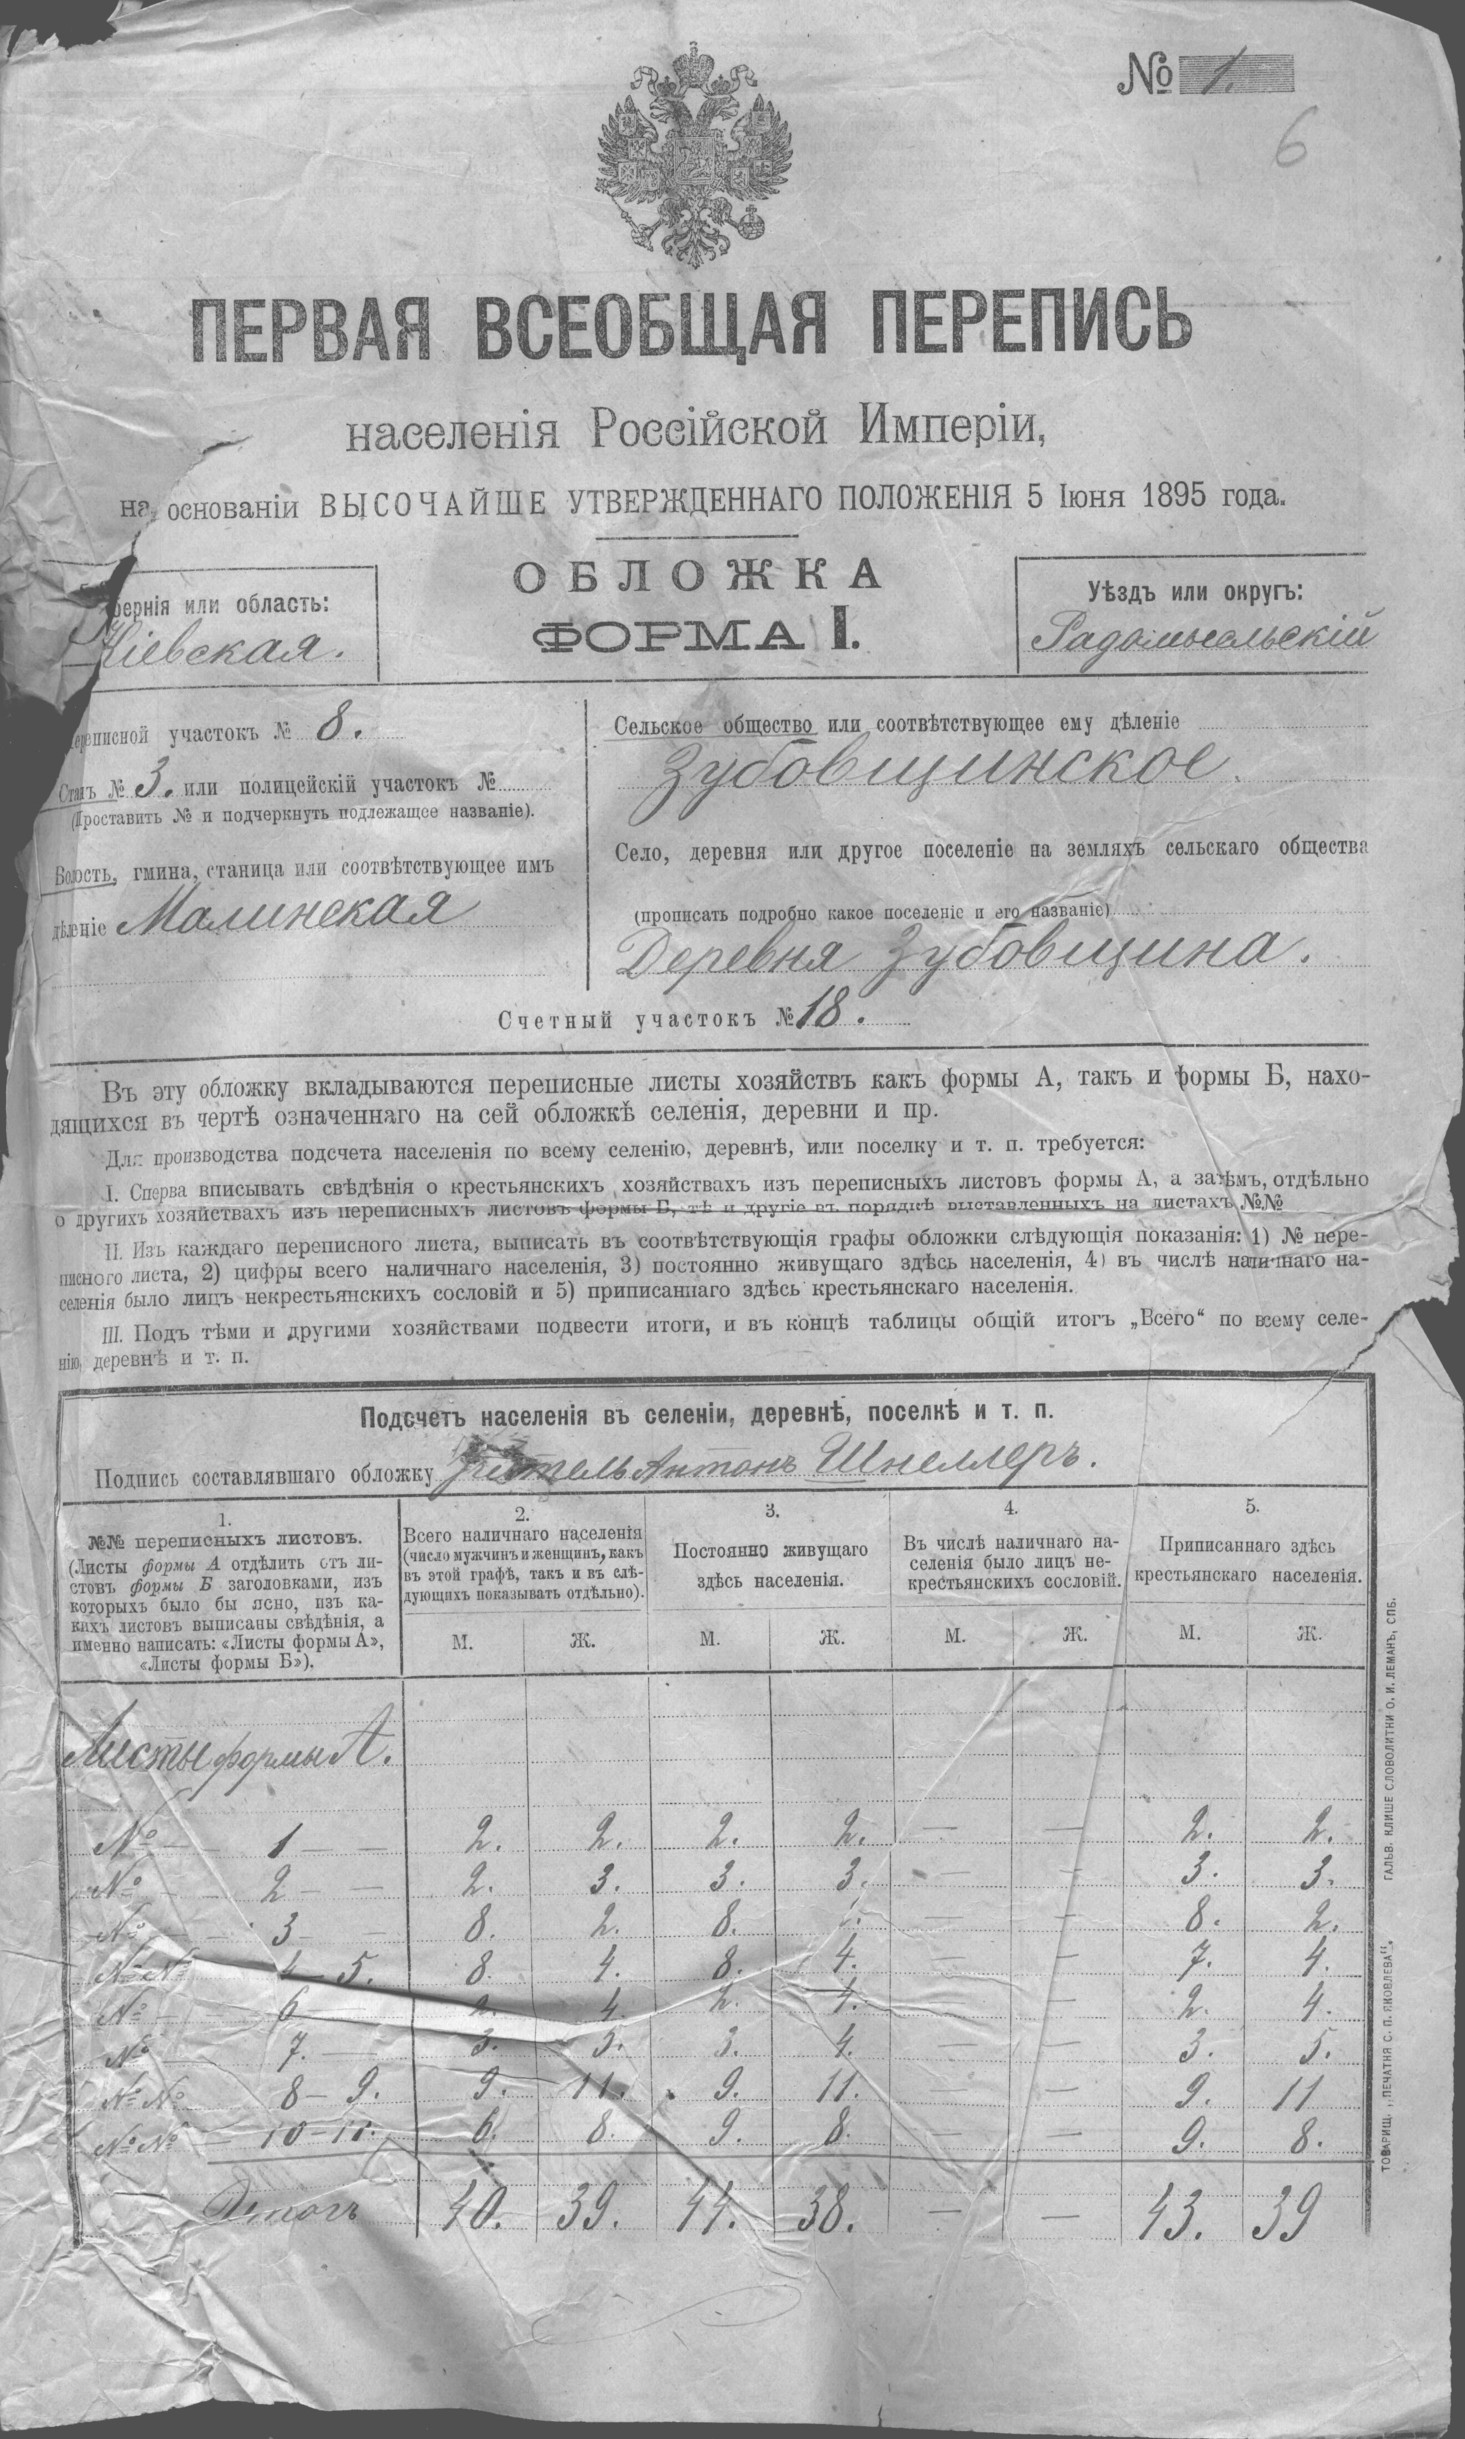 № 1.
6
ПЕРВАЯ ВСЕОБЩАЯ ПЕРЕПИСЬ
населенія Россійской Имперіи,
на основаніи ВЫСОЧАЙШЕ УТВЕРЖДЕННАГО ПОЛОЖЕНІЯ 5 Іюня 1895 года.
ОБЛОЖКА
ФОРМА I.
бернія или область:
Кіевская.
Уѣздъ или округъ:
Радомысльскій
Переписной участокъ № 8.
Станъ № 3. или полицейскій участокъ №
(Проставить № и подчеркнуть подлежащее названіе).
Волость, гмина, станица или соотвѣтствующее имъ
дѣленіе Малинская
Сельское общество или соотвѣтствующее ему дѣленіе
Зубовщинское.
Село, деревня или другое поселеніе на земляхъ сельскаго общества
(прописать подробно какое поселеніе и его названіе)
Деревня Зубовщина.
Счетный участокъ № 18.
Въ эту обложку вкладываются переписные листы хозяйствъ какъ формы А, такъ и формы Б, нахо-
дящихся въ чертѣ означеннаго на сей обложкѣ селенія, деревни и пр.
Для производства подсчета населенія по всему селенію, деревнѣ, или поселку и т. п. требуется:
I. Сперва вписывать свѣдѣнія о крестьянскихъ хозяйствахъ изъ переписныхъ листовъ формы А, а затѣмъ, отдѣльно
о другихъ хозяйствахъ изъ переписныхъ листовъ формы Б, тѣ и другіе въ порядкѣ выставленныхъ на листахъ №№
II. Изъ каждаго переписного листа, выписать въ соотвѣтствующія графы обложки слѣдующія показанія: 1) № пере-
писного листа, 2) цифры всего наличнаго населенія, 3) постоянно живущаго здѣсь населенія, 4) въ числѣ наличнаго на-
селенія было лицъ некрестьянскихъ сословій и 5) приписаннаго здѣсь крестьянскаго населенія.
III. Подъ тѣми и другими хозяйствами подвести итоги, и въ концѣ таблицы общій итогъ „Всего“ по всему селе-
нію, деревнѣ и т. п.
Подсчетъ населенія въ селеніи, деревнѣ, поселкѣ и т. п.
Подпись составлявшаго обложку учитель Антонъ Шнеллеръ.
1.
№№ переписныхъ листовъ.
(Листы формы А отдѣлить отъ ли-
стовъ формы Б заголовками, изъ
которыхъ было бы ясно, изъ ка-
кихъ листовъ выписаны свѣдѣнія, а
именно написать: «Листы формы А»,
«Листы формы Б»).
2.
Всего наличнаго населенія
(число мужчинъ и женщинъ, какъ
въ этой графѣ, такъ и въ слѣ-
дующихъ показывать отдѣльно).
3.
Постоянно живущаго
здѣсь населенія.
4.
Въ числѣ наличнаго на-
селенія было лицъ не-
крестьянскихъ сословій.
5.
Приписаннаго здѣсь
крестьянскаго населенія.
М. Ж. М. Ж. М. Ж. М. Ж.
Листы формы А.
№ — 1 — — 2. 2. 2. 2. — — 2. 2.
№ — — 2 — — 2. 3. 3. 3. — — 3. 3.
№ — — 3 — — 8. 2. 8. — — 8. 2.
№№ 4 – 5. 8. 4. 8. 4. — — 7. 4.
№ — 6 — 2. 4. 2. 4. — — 2. 4.
№ — 7. — 3. 5. 3. 4. — — 3. 5.
№№ 8 – 9. 9. 11. 9. 11. — — 9. 11
№№ — 10 – 11. 6. 8. 9. 8. — — 9. 8.
Итогъ 40. 39. 44. 38. — — 43. 39
ТОВАРИЩ. „ПЕЧАТНЯ С. П. ЯКОВЛЕВА“. ГАЛЬВ. КЛИШЕ СЛОВОЛИТНИ О. И. ЛЕМАНЪ, СПБ.